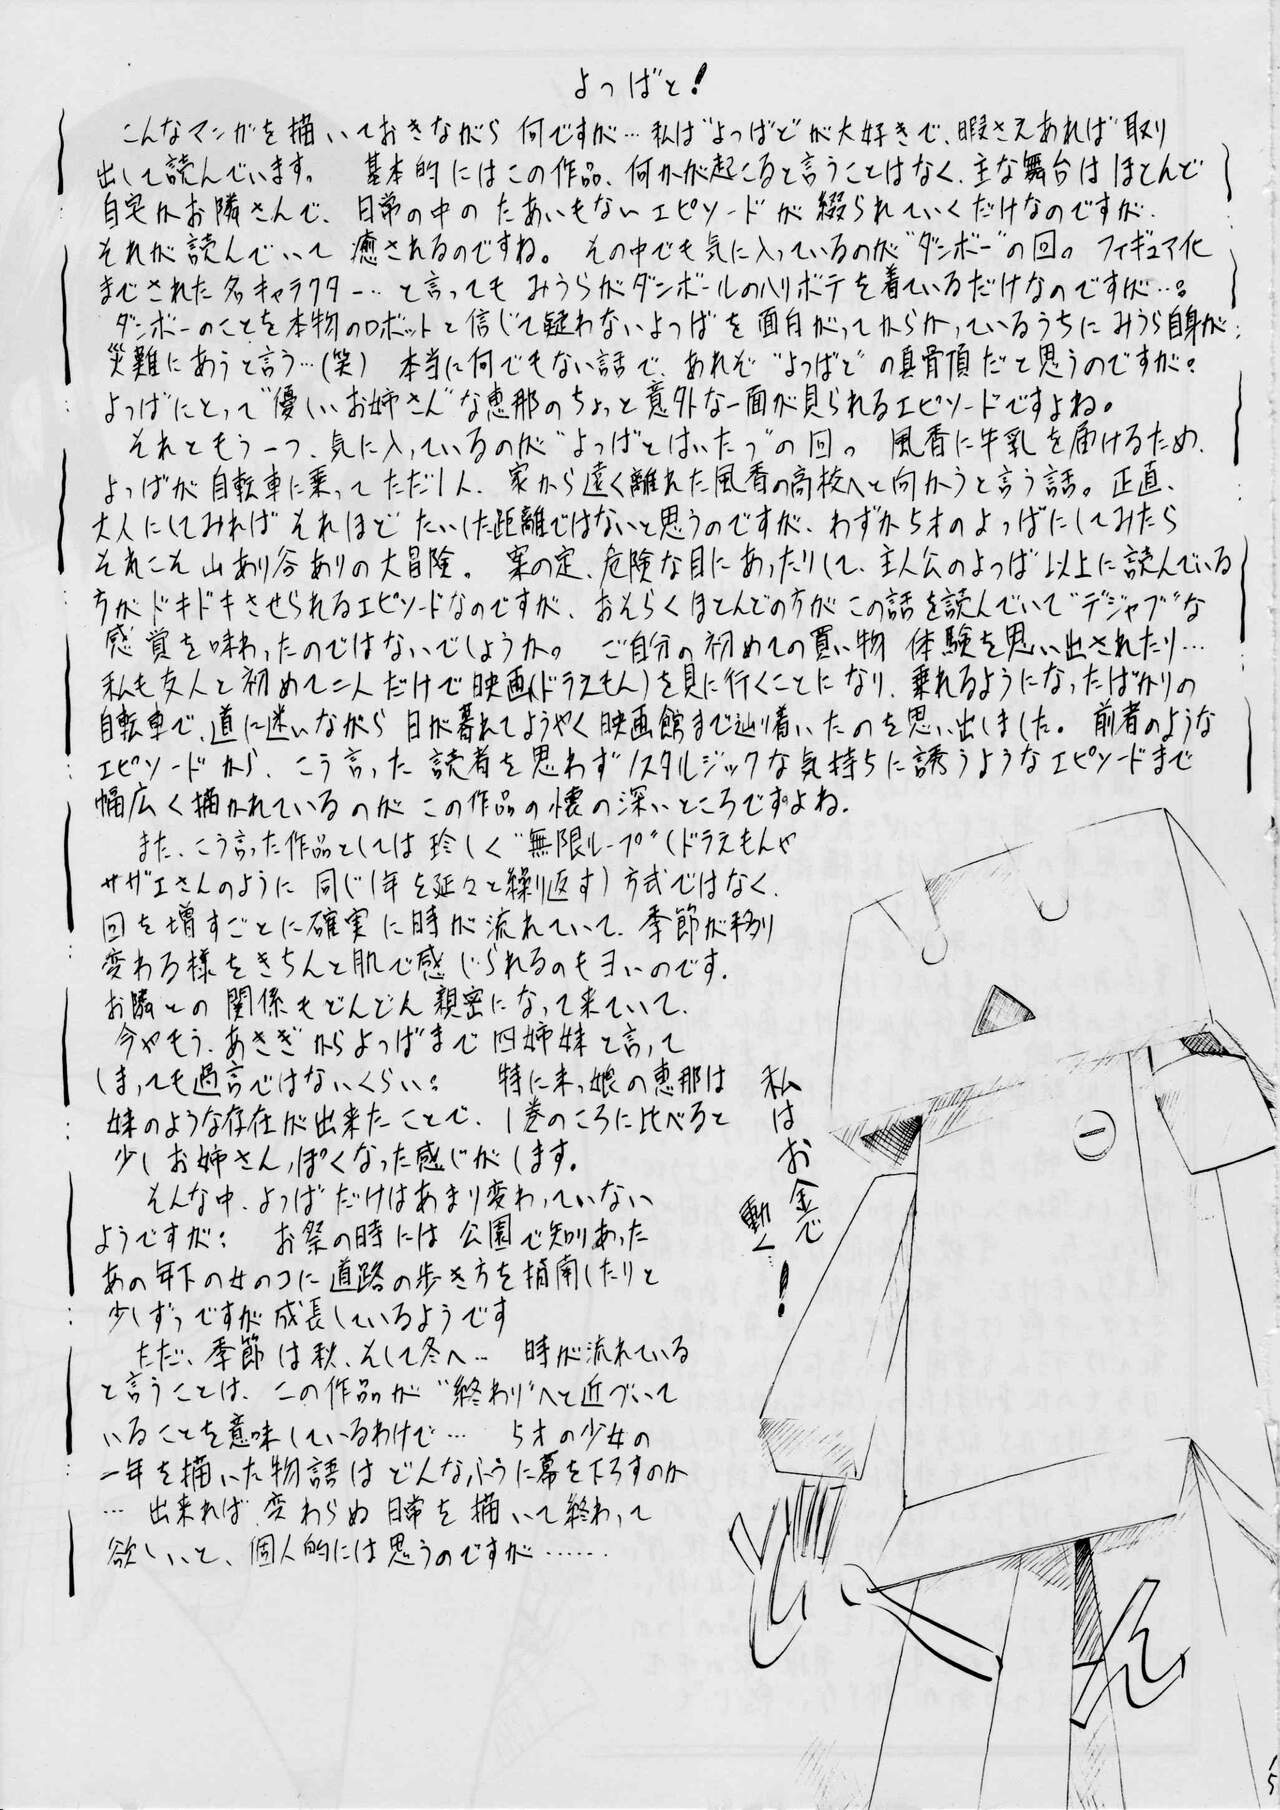 よつばと!
こんなマンガを描いておきながら何ですが…私は"よつばと"が大好きで、暇さえあれば取り
出して読んでいます。 基本的にはこの作品、何かが起こると言うことはなく、主な舞台はほとんど
自宅かお隣さんで、日常の中のたあいもないエピソードが綴られていくだけなのですが、
それが読んでいて癒されるのですね。 その中でも気に入っているのが"ダンボー"の回。 フィギュア化
までされた名キャラクター…と言ってもみうらがダンボールのハリボテを着ているだけなのですが…。
ダンボーのことを本物のロボットと信じて疑わないよつばを面白がってからかっているうちにみうら自身が
災難にあうと言う…(笑) 本当に何でもない話で、あれぞ"よつばと"の真骨頂だと思うのですが。
よつばにとって"優しいお姉さん"な恵那のちょっと意外な一面が見られるエピソードですよね。
それともう一つ、気に入っているのが"よつばとはいたつ"の回。 風香に牛乳を届けるため、
よつばが自転車に乗ってただ1人、家から遠く離れた風香の高校へと向かうと言う話。正直、
大人にしてみればそれほどたいした距離ではないと思うのですが、わずか5才のよつばにしてみたら
それこそ山あり谷ありの大冒険。 案の定、危険な目にあったりして、主人公のよつば以上に読んでいる
方がドキドキさせられるエピソードなのですが、おそらくほとんどの方がこの話を読んでいて"デジャブ"な
感覚を味わったのではないでしょうか。 ご自分の初めての買い物体験を思い出されたり…
私も友人と初めて二人だけで映画(ドラえもん)を見に行くことになり、乗れるようになったばかりの
自転車で、道に迷いながら日が暮れてようやく映画館まで辿り着いたのを思い出しました。 前者のような
エピソードから、こう言った読者を思わずノスタルジックな気持ちに誘うようなエピソードまで
幅広く描かれているのがこの作品の懐の深いところですよね。
また、こう言った作品としては珍しく"無限ループ"(ドラえもんや
サザエさんのように同じ1年を延々と繰り返す)方式ではなく、
回を増すごとに確実に時が流れていて、季節が移り
変わる様をきちんと肌で感じられるのもヨいのです。
お隣との関係もどんどん親密になって来ていて、
今やもう、あさぎからよつばまで四姉妹と言って
しまっても過言ではないくらい。 特に末っ娘の恵那は
妹のような存在が出来たことで、1巻のころに比べると
少しお姉さんっぽくなった感じがします。
そんな中、よつばだけはあまり変わっていない
ようですが。 お祭の時には公園で知りあった
あの年下の女のコに道路の歩き方を指南したりと
少しずつですが成長しているようです
ただ、季節は秋、そして冬へ… 時が流れている
と言うことは、この作品が"終わり"へと近づいて
いることを意味しているわけで… 5才の少女の
一年を描いた物語はどんなふうに幕を下ろすのか
…出来れば、変わらぬ日常を描いて終わって
欲しいと、個人的には思うのですが……
私はお金で
動く…!
15